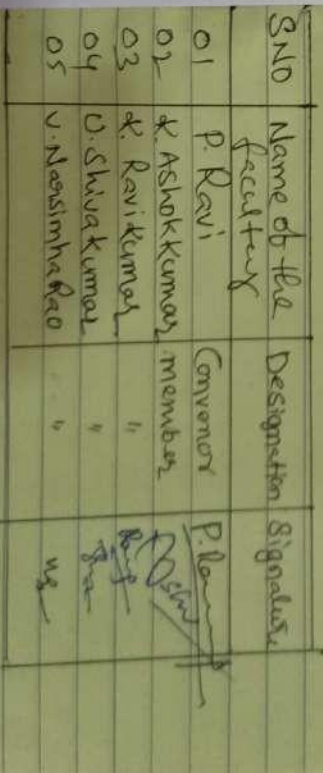 SNO Name of the faculty Designation Signature
01 P. Ravi Convonor P. Ravi
02 K. Ashok Kumar member
03 K. Ravi Kumar "
04 U. Shiva Kumar "
05 V. Narsimha Rao "